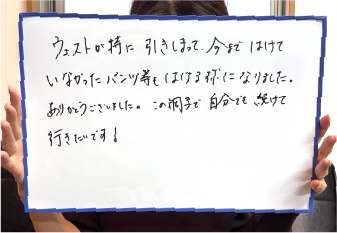 ウェストが特に引きしまって、今まではけて
いなかったパンツ等もはける様になりました。
ありがとうございました。この調子で自分でも続けて
行きたいです!